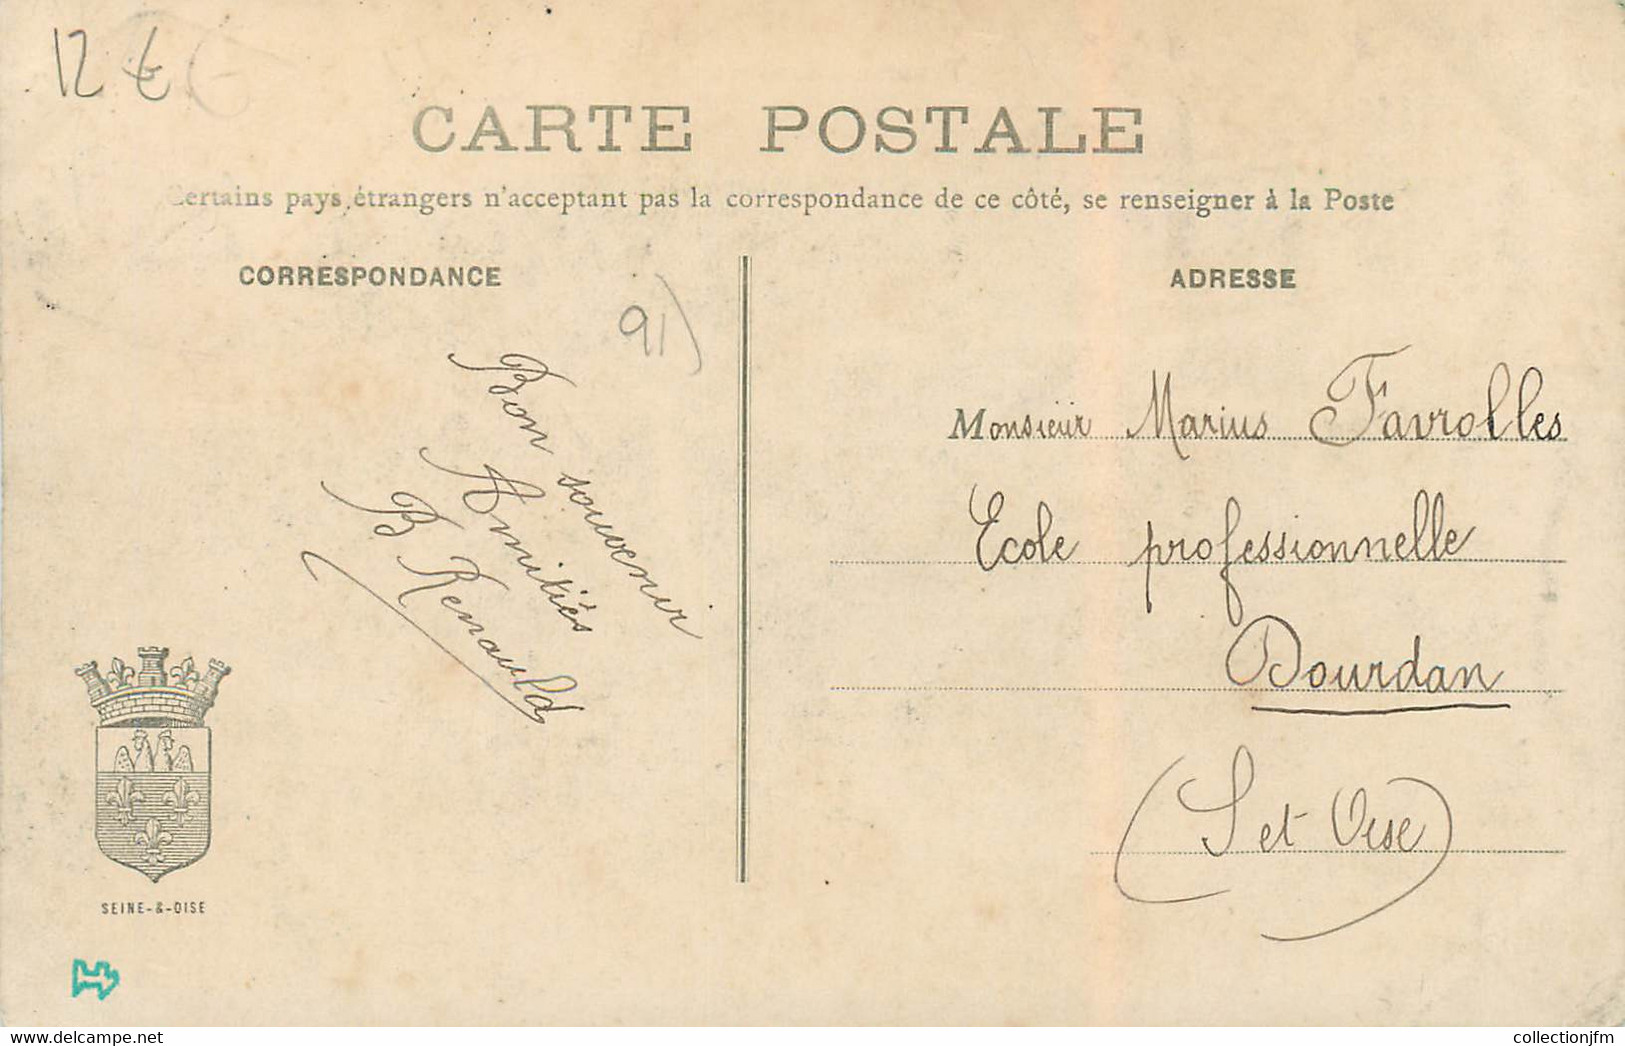 12 €
CARTE POSTALE
Certains pays étrangers n'acceptant pas la correspondance de ce côté, se renseigner à la Poste
CORRESPONDANCE
91)
Bon souvenir
Amitiés
B Renauld
SEINE-&-OISE
ADRESSE
Monsieur Marius Favrolles
Ecole professionnelle
Dourdan
(S et Oise)
collectionjfm